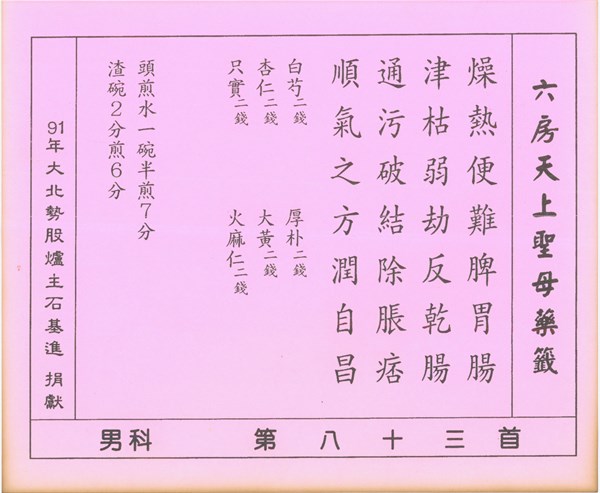 六房天上聖母藥籤
燥熱便難脾胃腸
津枯弱劫反乾腸
通污破結除脹痞
順氣之方潤自昌
白芍二錢 厚朴二錢
杏仁二錢 大黃二錢
只實二錢 火麻仁二錢
頭煎水一碗半煎7分
渣碗2分煎6分
91年大北勢股爐主石基進 捐獻
男科 第八十三首